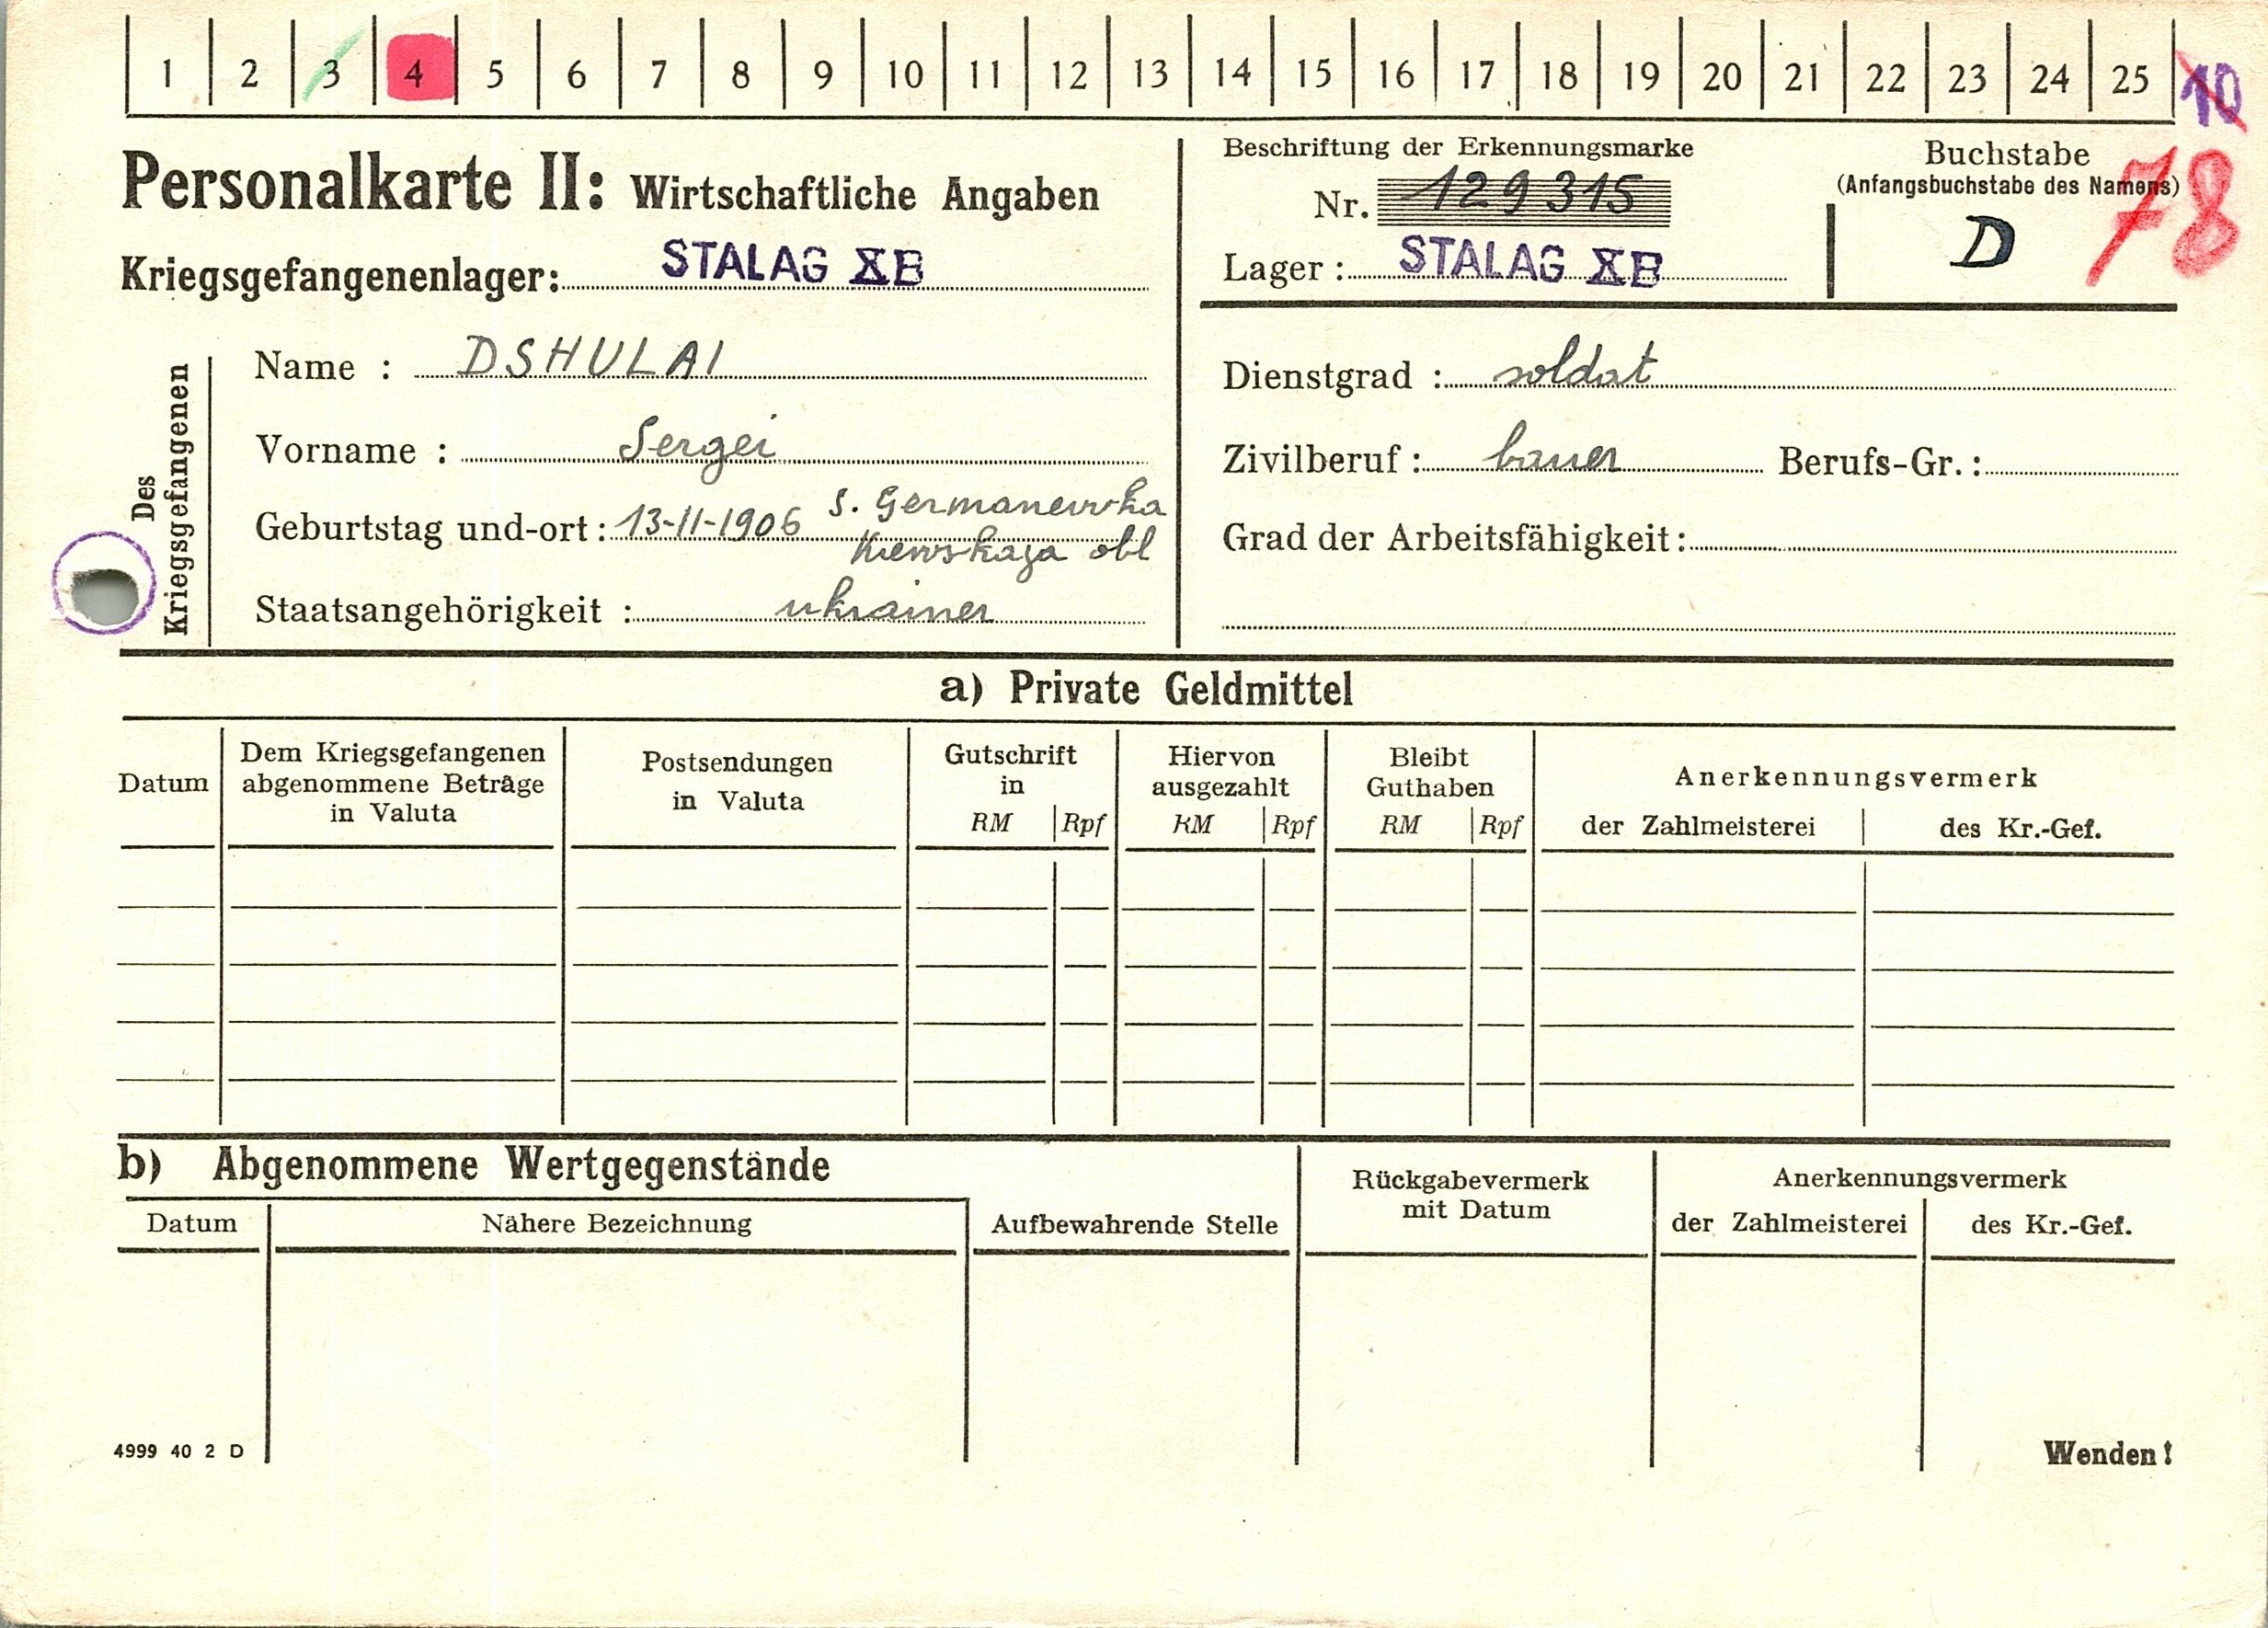 1 2 3 4 5 6 7 8 9 10 11 12 13 14 15 16 17 18 19 20 21 22 23 24 25 10
Personalkarte II: Wirtschaftliche Angaben
Kriegsgefangenenlager: STALAG XB
Beschriftung der Erkennungsmarke
Nr. 129315
Lager: STALAG XB
Buchstabe
(Anfangsbuchstabe des Namens)
D
78
Des
Kriegsgefangenen
Name : DSHULAI
Vorname : Sergei
Geburtstag und-ort: 13-11-1906 S. Germanewka
Kiewskaja obl
Staatsangehörigkeit : ukrainer
Dienstgrad : soldat
Zivilberuf: bauer Berufs-Gr.:
Grad der Arbeitsfähigkeit:
a) Private Geldmittel
Datum
Dem Kriegsgefangenen
abgenommene Beträge
in Valuta
Postsendungen
in Valuta
Gutschrift
in
RM Rpf
Hiervon
ausgezahlt
RM Rpf
Bleibt
Guthaben
RM Rpf
Anerkennungsvermerk
der Zahlmeisterei des Kr.-Gef.
b) Abgenommene Wertgegenstände
Datum Nähere Bezeichnung Aufbewahrende Stelle
Rückgabevermerk
mit Datum
Anerkennungsvermerk
der Zahlmeisterei des Kr.-Gef.
4999 40 2 D
Wenden!